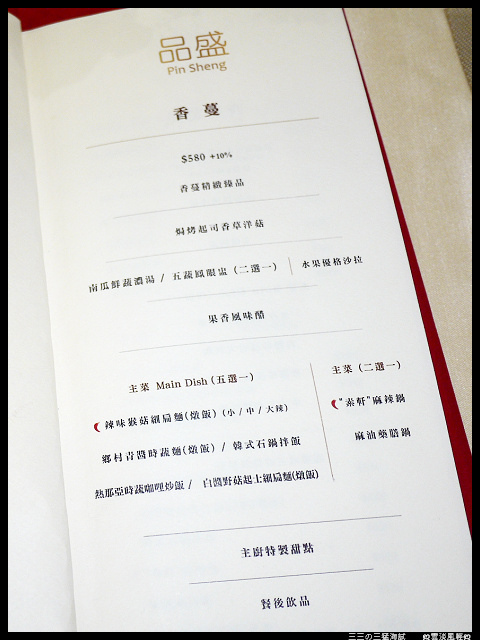 品盛
Pin Sheng
香蔓
$580 +10%
香蔓精緻臻品
焗烤起司香草洋菇
南瓜鮮蔬濃湯 / 五蔬鳳眼盅 (二選一)
水果優格沙拉
果香風味醋
主菜 Main Dish (五選一)
辣味猴菇細扁麵(燉飯) (小/中/大辣)
鄉村青醬時蔬麵(燉飯) / 韓式石鍋拌飯
熱那亞時蔬咖哩炒飯 / 白醬野菇起士細扁麵(燉飯)
主菜 (二選一)
"素軒"麻辣鍋
麻油藥膳鍋
主廚特製甜點
餐後飲品
三三の三猛海賊
雲淡風輕